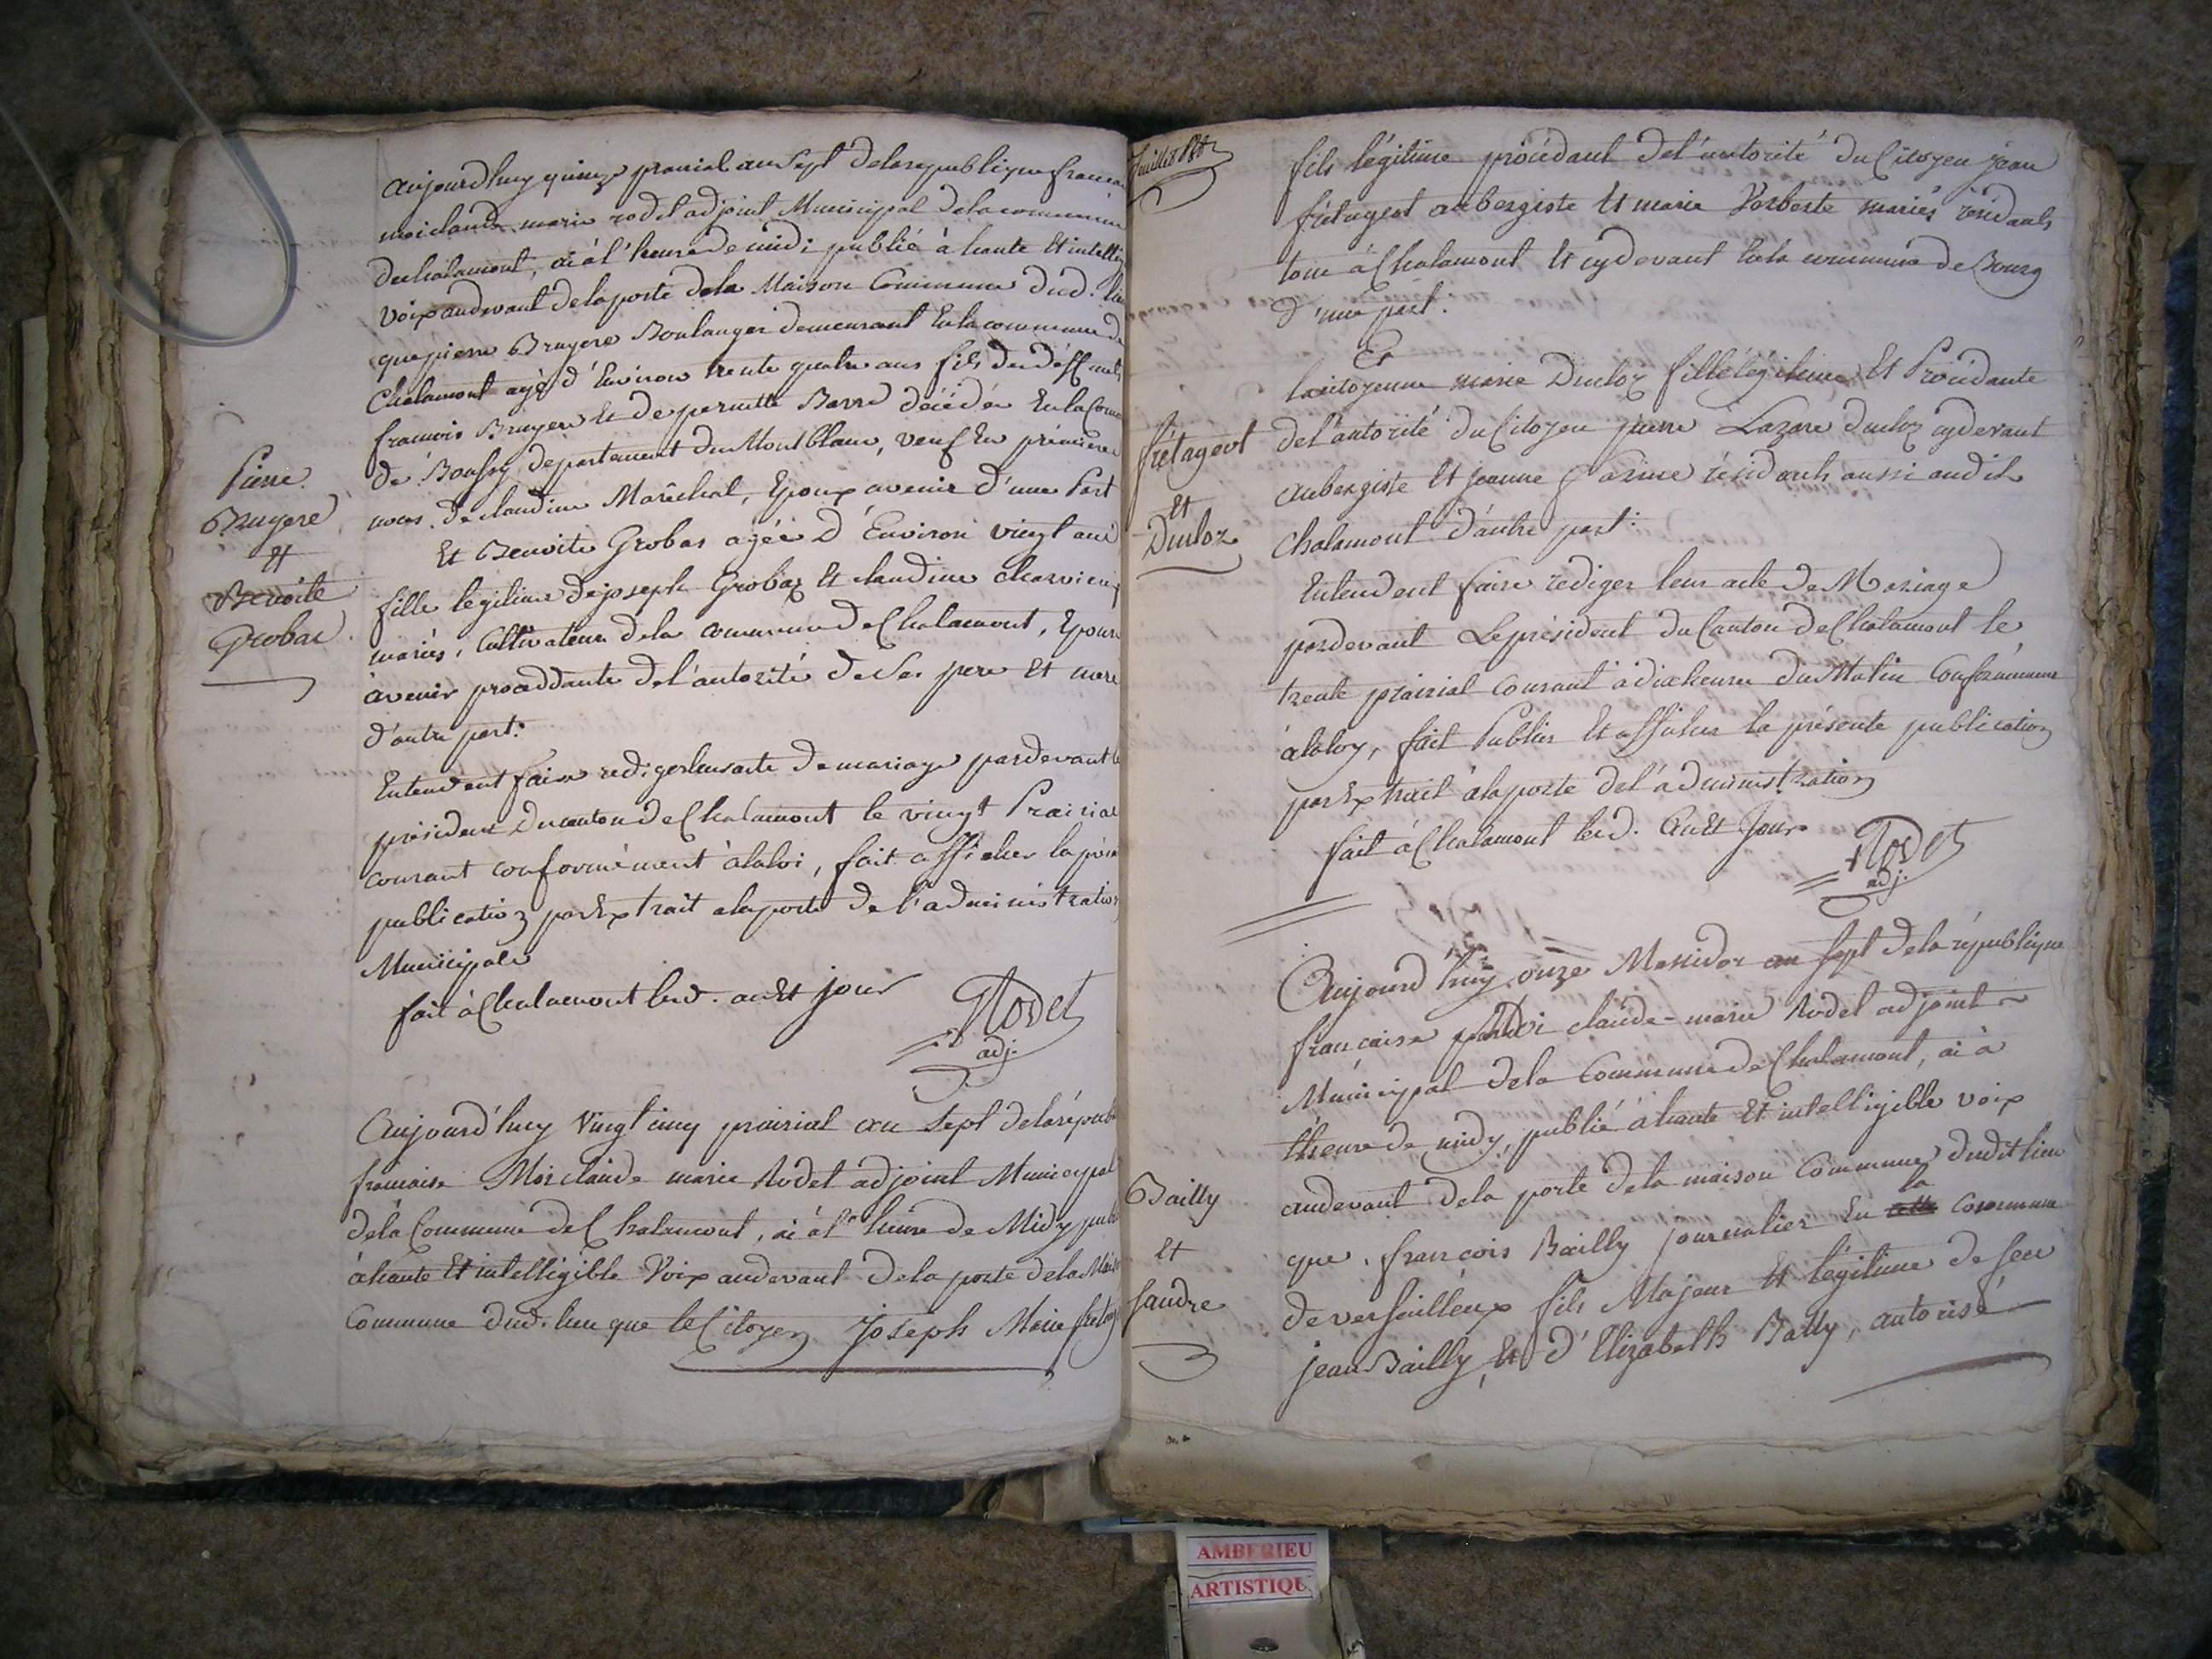 aujourdhuy quinze prairial an sept delarepublique francai
moi claude marie rodet adjoint Municipal delacommune
dechalamont, ai à l'heure de midi publié à haute Et intelligi
voix audevant delaporte dela Maison Commune dud. lieu
que pierre Bruyere Boulanger demeurant Enlacommune de
Chalamont agé d'Environ trente quatre ans fils de deffunts
francois Bruyere Et de pernette décédés Enlacom
de departement du Montblanc, veuf En premieres
noces de claudine Maréchal, Epoux avenir d'une Part
Et Benoite Grobas agée D'Environ vingt ans
fille legitime de joseph Grobas Et claudine
mariés, Cultivateurs dela commune de Chalamont, Epouse
àvenir procédante del'autorité de Ses pere Et mere
d'autre part:
Entendent faire rediger leur acte de mariage pardevant le
président Ducanton de Chalamont le vingt Prairial
courant conformément àlaloi, fait afficher la prése
publication par Extrait alaporte de l'administration
Municipale
fait à Chalamont lesd. an Et jour
Rodet
adj.
Pierre
Bruyere
Et
Benoite
Grobas
Aujourd'huy Vingt cinq prairial an Sept delarépub
francaise Moi claude marie Rodet adjoint Municipal
dela Commune de Chalamont, ai à l'heure de Midy pub
àhaute Et intelligible Voix audevant dela porte dela Mais
Commune dud. lieu que le Citoyen Joseph Marie fretag
fils légitime procédant del'autorité du Citoyen jean
frétageot aubergiste Et marie mariés résidants
tous à Chalamont Et cydevant Enla commune de Bourg
d'une part.
Et
lacitoyenne marie Ducloz fille légitime Et Procédante
del'autorité du Citoyen pierre Lazare ducloz cydevant
aubergiste Et jeanne résidants aussi audit
Chalamont d'autre part:
Entendent faire rediger leur acte de Mariage
pardevant Leprésident du Canton de Chalamont le
trente prairial Courant à dixheures du Matin Conformément
àlaloy, fait Publier Et afficher la présente publication
par Extrait àlaporte del'administration
fait à Chalamont lesd. an Et Jour
Rodet
adj.
frétageot
Et
Ducloz
Aujourd'huy onze Messidor an sept dela république
francaise claude-marie Rodet adjoint
Municipal dela Commune de Chalamont, ai à
lheure de midy, publié à haute Et intelligible voix
audevant dela porte dela maison Commune dudit lieu
que francois Bailly journalier En la commune
de versailleux fils Majeur Et légitime de feu
jean Bailly, Et d'Elizabeth Batty, autorisé
Bailly
Et
faudre
AMBERIEU
ARTISTIQU